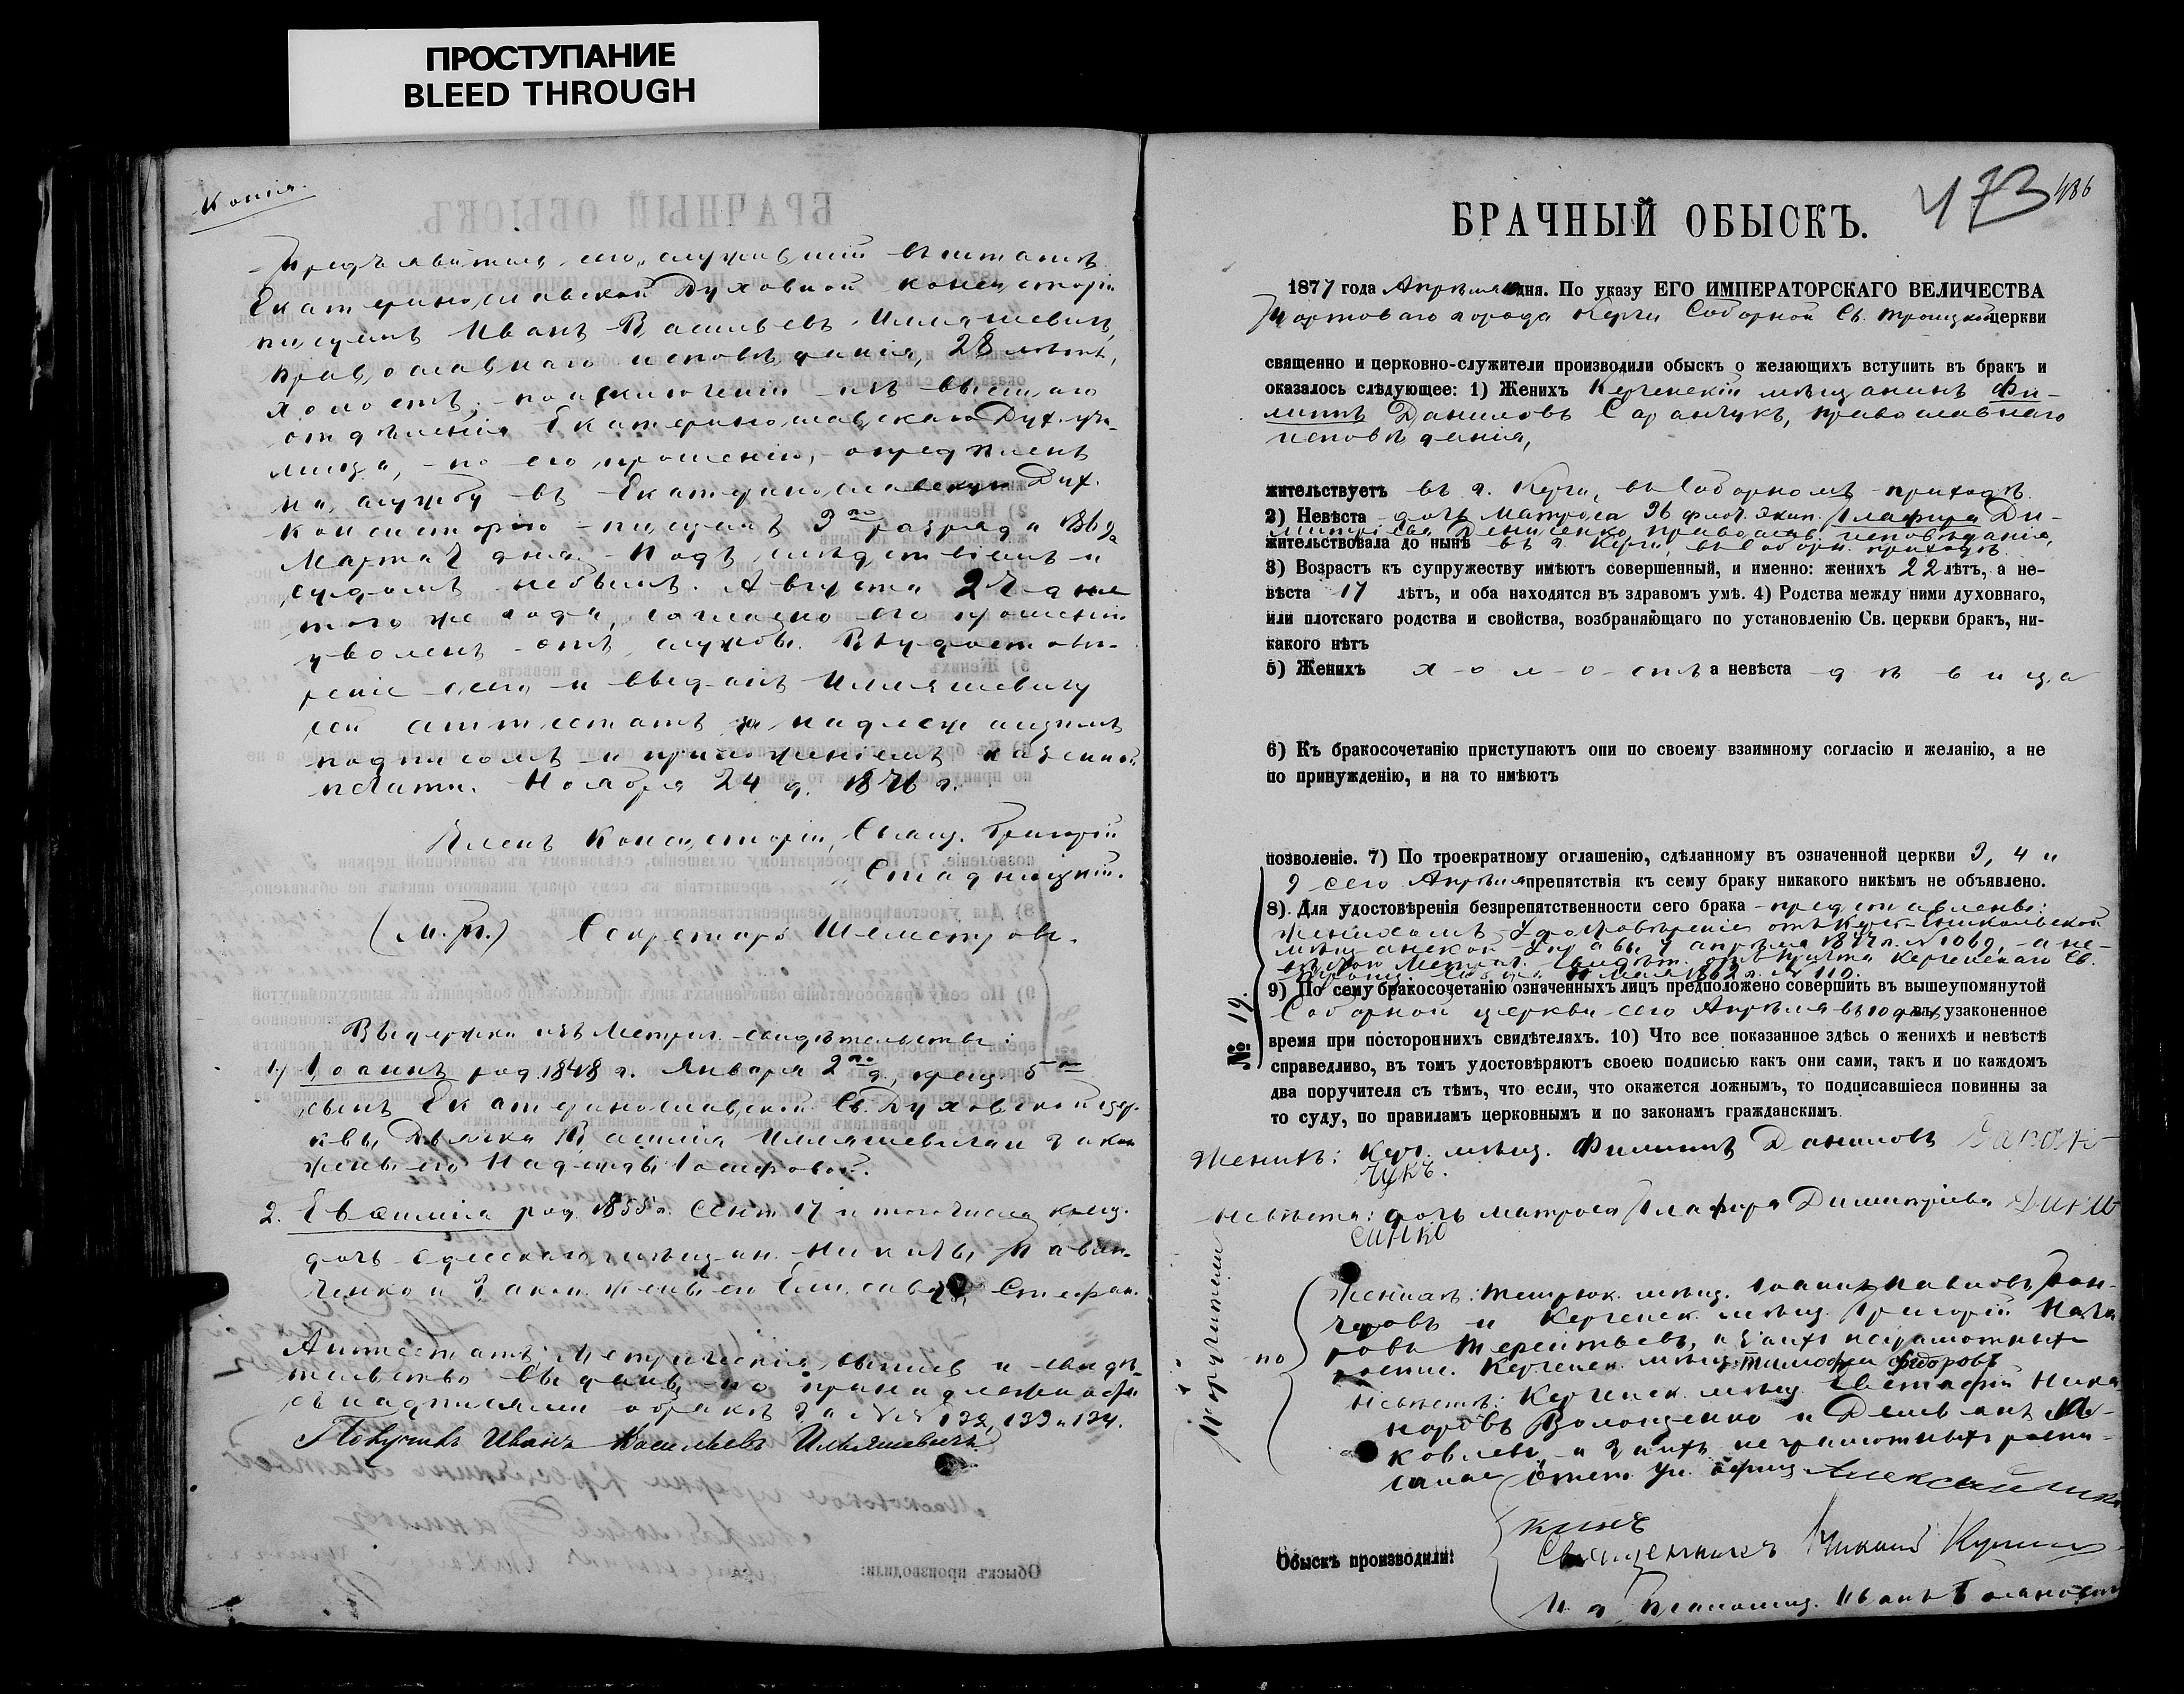 ПРОСТУПАНИЕ
BLEED THROUGH
Копія.
Предъявитель сего, служившій въ штатѣ
Екатеринославской Духовной Консисторіи
писцемъ Иванъ Васильевъ Илляшевичъ,
православнаго исповѣданія, 28 лѣтъ,
холостъ, по исключеніи изъ высшаго
отдѣленія Екатеринославскаго Дух. учи-
лища, по его прошенію, опредѣленъ
на службу въ Екатеринославскую Дух.
Консисторію писцемъ 3го разряда
Марта 2 дня. Подъ слѣдствіемъ и
судомъ небылъ. Августа 27 дня
того же года, согласно его прошенію
уволенъ отъ службы. Въ удостовѣ-
реніе сего и выданъ Илляшевичу
сей аттестатъ за надлежащимъ
подписомъ и приложеніемъ казенной
печати. Ноября 24 д. 1876 г.
Членъ Консисторіи, Свящ. Григорій
Стадницкій.
(М.П.) Секретарь
Выдержки изъ Метрич. свидѣтельствъ:
1) Іоаннъ род. 1848 г. Января 2го д., крещ. 5го
сынъ Екатеринославской Св. Духовской цер-
кви, Дьячка Василія Илляшевича и закон.
жены его Надежды Іосифовой.
2. Евфимія род. 1855 г. Сент. 17 и того числа крещ.
дочь одесскаго мѣщан. Никиты
и закон. жены его Елисаветы Стефан.
Аттестатъ, Метрическія выписи и свидѣ-
тельство выданы по принадлежности
съ надписями о бракѣ за №№ 132, 133 и 134.
Получилъ Иванъ Васильевъ Илляшевичъ
473 486
БРАЧНЫЙ ОБЫСКЪ.
1877 года Апрѣля дня. По указу ЕГО ИМПЕРАТОРСКАГО ВЕЛИЧЕСТВА
Портоваго города Керчи Соборной Св. Троицкой церкви
священно и церковно-служители производили обыскъ о желающихъ вступить въ бракъ и
оказалось слѣдующее: 1) Женихъ Керченскій мѣщанинъ Фи-
липпъ Даниловъ Саранчукъ, православнаго
исповѣданія,
жительствуетъ въ г. Керчи, въ Соборномъ приходѣ.
2) Невѣста дочь Матроса 36 флот. экип. Глафира Ди-
митріева Денисенко, правосл. исповѣданія,
жительствовала до нынѣ въ г. Керчи, въ Соборн. приходѣ.
3) Возрастъ къ супружеству имѣютъ совершенный, и именно: женихъ 22 лѣтъ, а не-
вѣста 17 лѣтъ, и оба находятся въ здравомъ умѣ. 4) Родства между ними духовнаго,
или плотскаго родства и свойства, возбраняющаго по установленію Св. церкви бракъ, ни-
какого нѣтъ
5) Женихъ х-о-л-о-стъ а невѣста дѣвица
6) Къ бракосочетанію приступаютъ они по своему взаимному согласію и желанію, а не
по принужденію, и на то имѣютъ
позволеніе. 7) По троекратному оглашенію, сдѣланному въ означенной церкви 3, 4 и
9 сего Апрѣля препятствія къ сему браку никакого никѣмъ не объявлено.
8). Для удостовѣренія безпрепятственности сего брака представлены:
Женихомъ Удостовѣреніе отъ Керч-Еникольской
мѣщанской Управы, апрѣля 1877 г. № 1069, а не-
вѣстою Метрич. свидѣт. отъ причта Керченскаго Св.
Троиц. Собора мая 1862 г. № 110.
9) По сему бракосочетанію означенныхъ лицъ предположено совершить въ вышеупомянутой
Соборной церкви сего Апрѣля въ 10 д. въ узаконенное
№ 19.
время при постороннихъ свидѣтеляхъ. 10) Что все показанное здѣсь о женихѣ и невѣстѣ
справедливо, въ томъ удостовѣряютъ своею подписью какъ они сами, такъ и по каждомъ
два поручителя съ тѣмъ, что если, что окажется ложнымъ, то подписавшіеся повинны за
то суду, по правиламъ церковнымъ и по законамъ гражданскимъ.
Женихъ: Керч. мѣщ. Филиппъ Даниловъ Саран
чукъ.
Невѣста: дочь матроса Глафира Димитріева Дини
синко
Поручители
по
Женихѣ: Темрюк. мѣщ. Іоаннъ Павловъ Гон-
чаровъ и Керченск. мѣщ. Григорій
Терентьевъ, а за ихъ неграмотныхъ
роспис. Керченск. мѣщ. Тимофей Федоровъ
Невѣстѣ: Керченск. мѣщ. Евстафій Ника
норовъ Волощенко и Демьянъ Я-
ковлевъ, а за ихъ неграмотныхъ роспи-
сался Алексѣй
Обыскъ производили:
Священникъ
И. д. Псаломщ. Иванъ